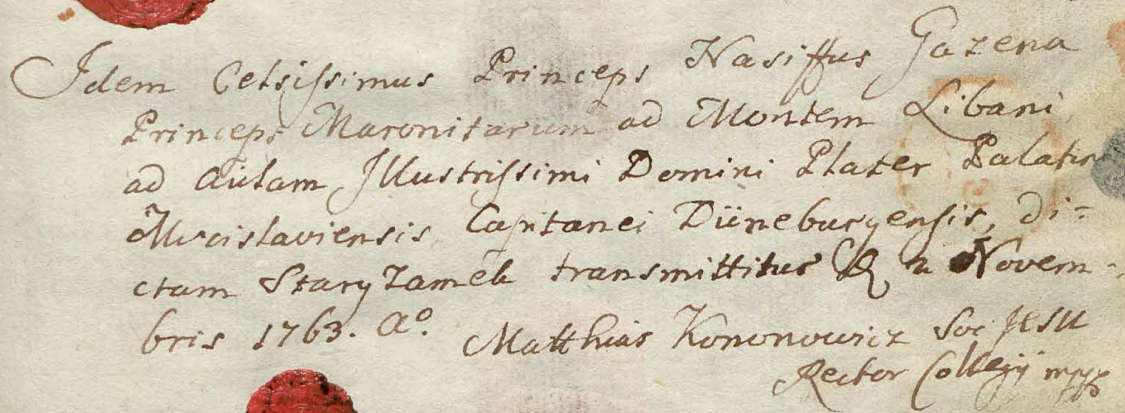 Idem Celsissimus Princeps Nasiffus Gazena
Princeps Maronitarum ad Montem Libani
ad Aulam Illustrissimi Domini Plater Palatin
Mscislaviensis Capitanei Düneburgensis, di=
ctam Stary Zamek transmittitur Novem-
bris 1763. Aº.
Matthias Kononowicz Soc JESU
Rector Collegij mpp